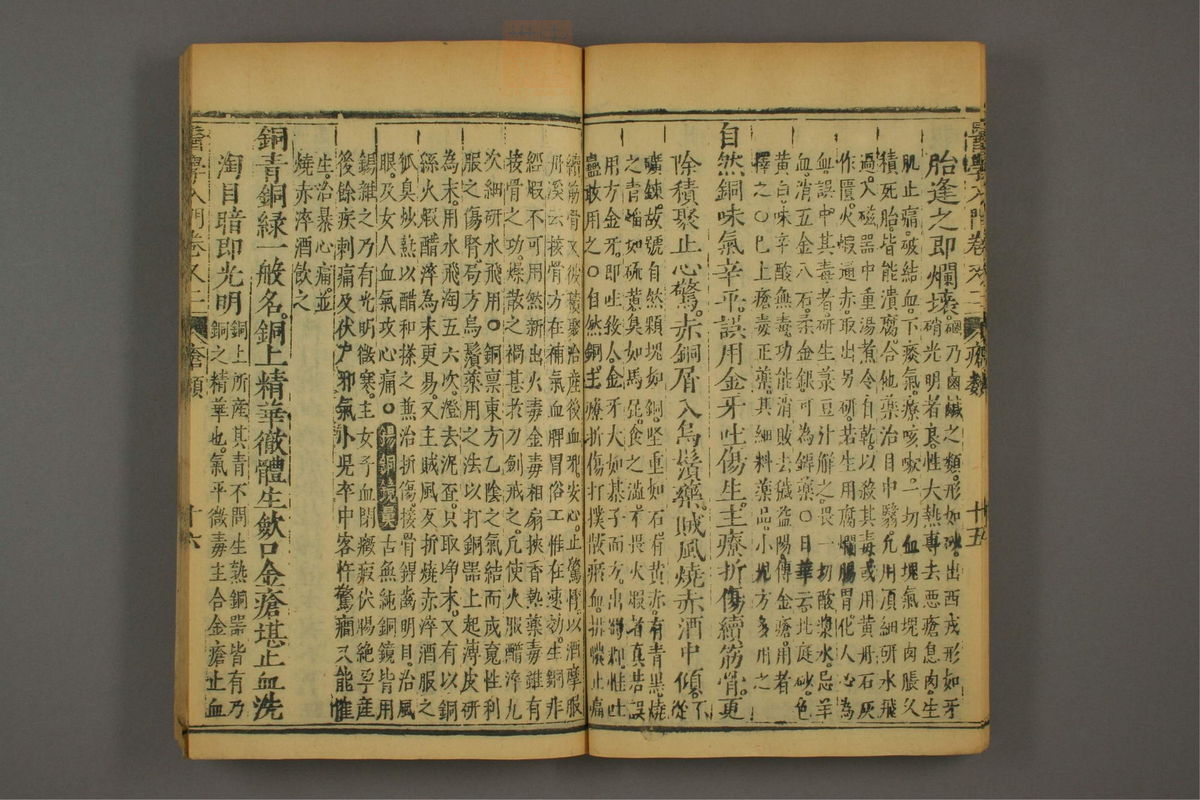 醫學入門卷之二 瘡類 十五
胎逢之即爛壞。硇乃鹵鹹之類。形如砂。出西戎形如牙
硝光明者良。性大熱專去惡瘡息肉。生
肌止痛。破結血。下痰氣。療咳嗽。一切血塊氣塊肉脹久
積死胎。皆能潰腐。合他藥治目中翳。凡用須細研水飛
過。入磁器中重湯煮令自乾。以殺其毒。或用黃丹石灰
作匱。火煆通赤。取出另研。若生用腐爛腸胃。化人心為
血。誤中其毒者。研生菉豆汁解之。畏一切酸漿水。忌羊
血。消五金八石。柔金銀。可為銲藥○日華云北庭砂。色
黃白。味辛酸無毒。功能消敗去穢益陽。傅金瘡。用者
擇之○巳上瘡毒正藥。其細料藥品。小兒方多用之
自然銅味氣辛平。誤用金牙吐傷生。主療折傷續筋骨。更
除積聚止心驚。赤銅屑入烏鬚藥。賊風燒赤酒中傾。不從
礦鍊。故號自然顆塊如銅。堅重如石。有黃赤。有青黑。燒
之青焰如硫黃臭如馬屁。食之澁。不畏火煆者真。若誤
用方金牙。即吐殺人。金牙大如棊子而方。出蜀郡。性吐
蠱敢用之○自然銅主療折傷打撲散瘀血。排膿止痛
續筋骨又破積聚治產後血邪。安心。止驚悸。以酒摩服
丹溪云接骨方在補氣血脾胃俗工惟在速効。生銅非
經煆不可用然新出火毒金毒相扇挾香熱藥毒雖有
接骨之功。燥散之禍甚於刀劍戒之。凡使火服醋淬九
次細研水飛用○銅禀東方乙陰之氣結而成竟性利
服之傷腎。局方烏鬚藥用之法以打銅器上起薄皮研
為末。用水飛淘五六次。澄去泥歪。只取淨末。又有以銅
絲火煆醋淬為末更易。又主賊風反折燒赤淬酒服之
狐臭炒熱以醋和搽之兼治折傷接骨銲齒明目。治風
眼。及女人血氣攻心痛。錫銅鏡鼻古無純銅鏡皆用
錫雜之乃有光明微寒。主女子血閉癥瘕伏腸絕孕產
後餘疾刺痛及伏尸邪氣小兒卒中客忤驚癇又能催
生。治暴心痛。並
燒赤淬酒飲之
銅青銅綠一般名。銅上精華徹體生歛口金瘡堪止血洗
淘目暗即光明銅上所產其青不間生熟銅器皆有乃
銅之精華也。氣平微毒主合金瘡止血
醫學入門卷之二 瘡類 十六